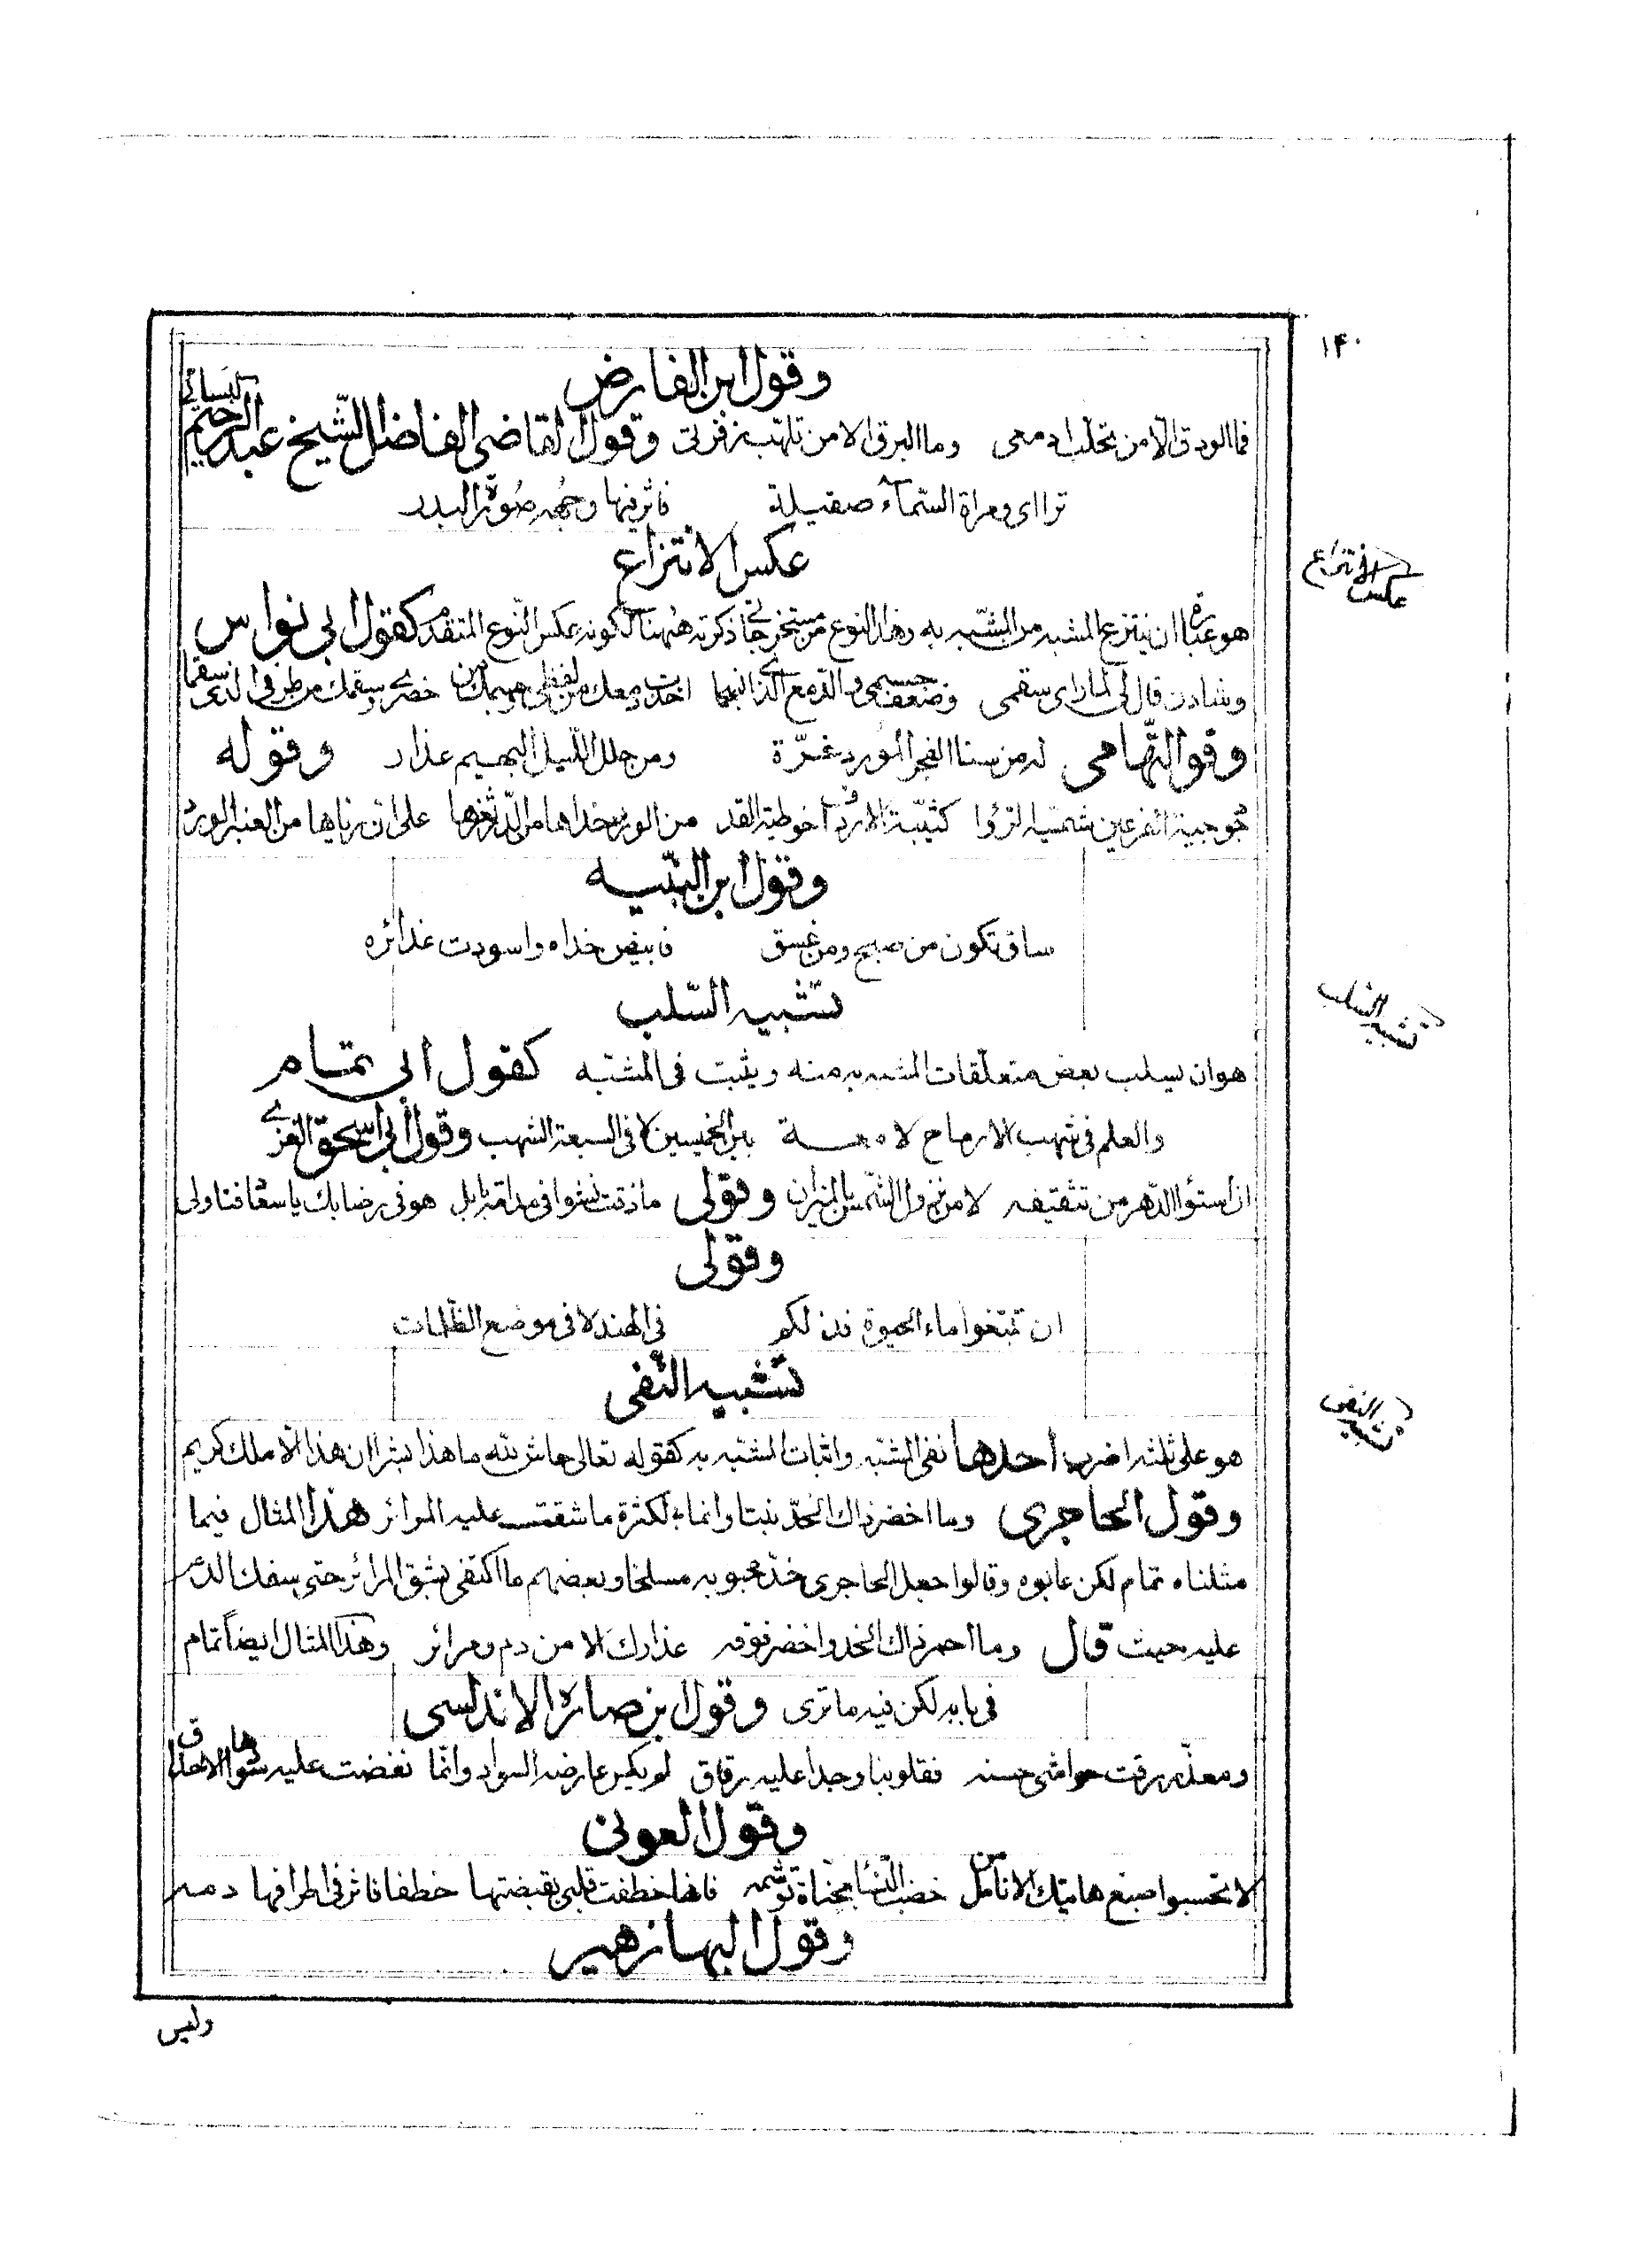 ١۴٠
وقول ابن الفارض
فما الودق الّا من تحلب ادمعى وما البرق الا من تلهّب زفرتى وقول القاضى الفاضل الشّيخ عبد الرحيم البيسانى
تراأى ومراة السّماء صقيلة فاثر فيها وجهه صُورة البدر
عكس الانتزاع
عكس الانتزاع
هو عبارة ان ينتزع المشبه من المشبّه به وهذا النوع من مستخرجاتى ذكرته هُهنا لكونه عكس النّوع المتقدم كقول ابى نواس
وشادن قال لى لما راى سقمى وضعف جسمى والدّمع الذى انسجما اخذت دمعك من لفظى وجسمك من خصرى وسقمك من طرفى الذى سقما
وقول التّهامى له من سنا الفجر المورد غرّة ومن حلل اللّيل البهيم عذار وقوله
كثيبة الارداف خوطية القد من الورد خداها من الدّر ثغرها على ان رياها من العنبر الورد
وقول ابن النّبيه
ساق تكون من صبح ومن غسق فابيض خداه واسودت غدائره
تشبيه السّلب
تشبيه السّلب
هو ان يسلب بعض متعلّقات المشبه به منه ويثبت فى المشبّه كقول ابى تمام
والعلم فى شهب الارماح لامعة بين الخميسين لا فى السبعة الشهب وقول ابى اسحق الغزى
ان استوا الدّهر من تثقيفه لا من نزول الشّمس بالميزان وقولى ما ذقت نشوا فى مدامة بابل هو فى رضابك يا سعا فناولى
وقولى
ان تبتغوا ماء الحيوة فذلكم فى الهند لا فى موضع الظّلمات
تشبيه النّفى
تشبيه النفى
هو على ثلثه اضرب احدها نفى المشبّه واثبات المشبّه به كقوله تعالى حاش لله ما هذا بشرا ان هذا الّا ملك كريم
وقول الحاجرى وما اخضر ذاك الخدّ نبتا وانما لكثرة ما شقت عليه المرائر هذا المثال فيما
مثلناه تمام لكن عابوه وقالوا جعل الحاجرى خدّ محبوبه مسلخا وبعضهم ما اكتفى بشق المرائر حتى سفك الدم
عليه حيث قال وما احمر ذاك الخد واخضر فوقه عذارك الا من دم ومرائر وهذا المثال ايضاً تمام
فى بابه لكن فيه ما ترى وقول ابن صارة الاندلسى
ومعذّر رقت حواشى حسنه فقلوبنا وجدا عليه رقاق لم يكس عارضه السواد وانّما نفضت عليه سوادها الاحداق
وقول العونى
لا تحسبوا صبغ هاتيك الانامل من خضب فانها خطفت قلبى بقبضتها خطفا فاثر فى اطرافها دمه
وقول البها زهير
وليس